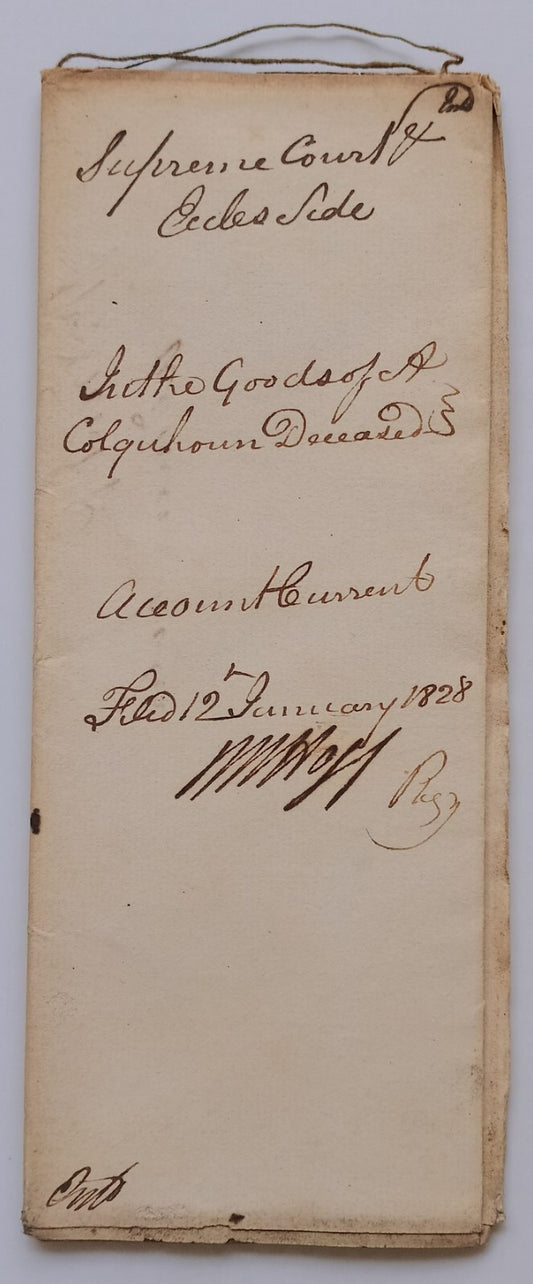 Supreme Court &
Eccles Side
In the Goods of A
Colquhoun Deceased
Account Current
Filed 12th January 1828
Regr